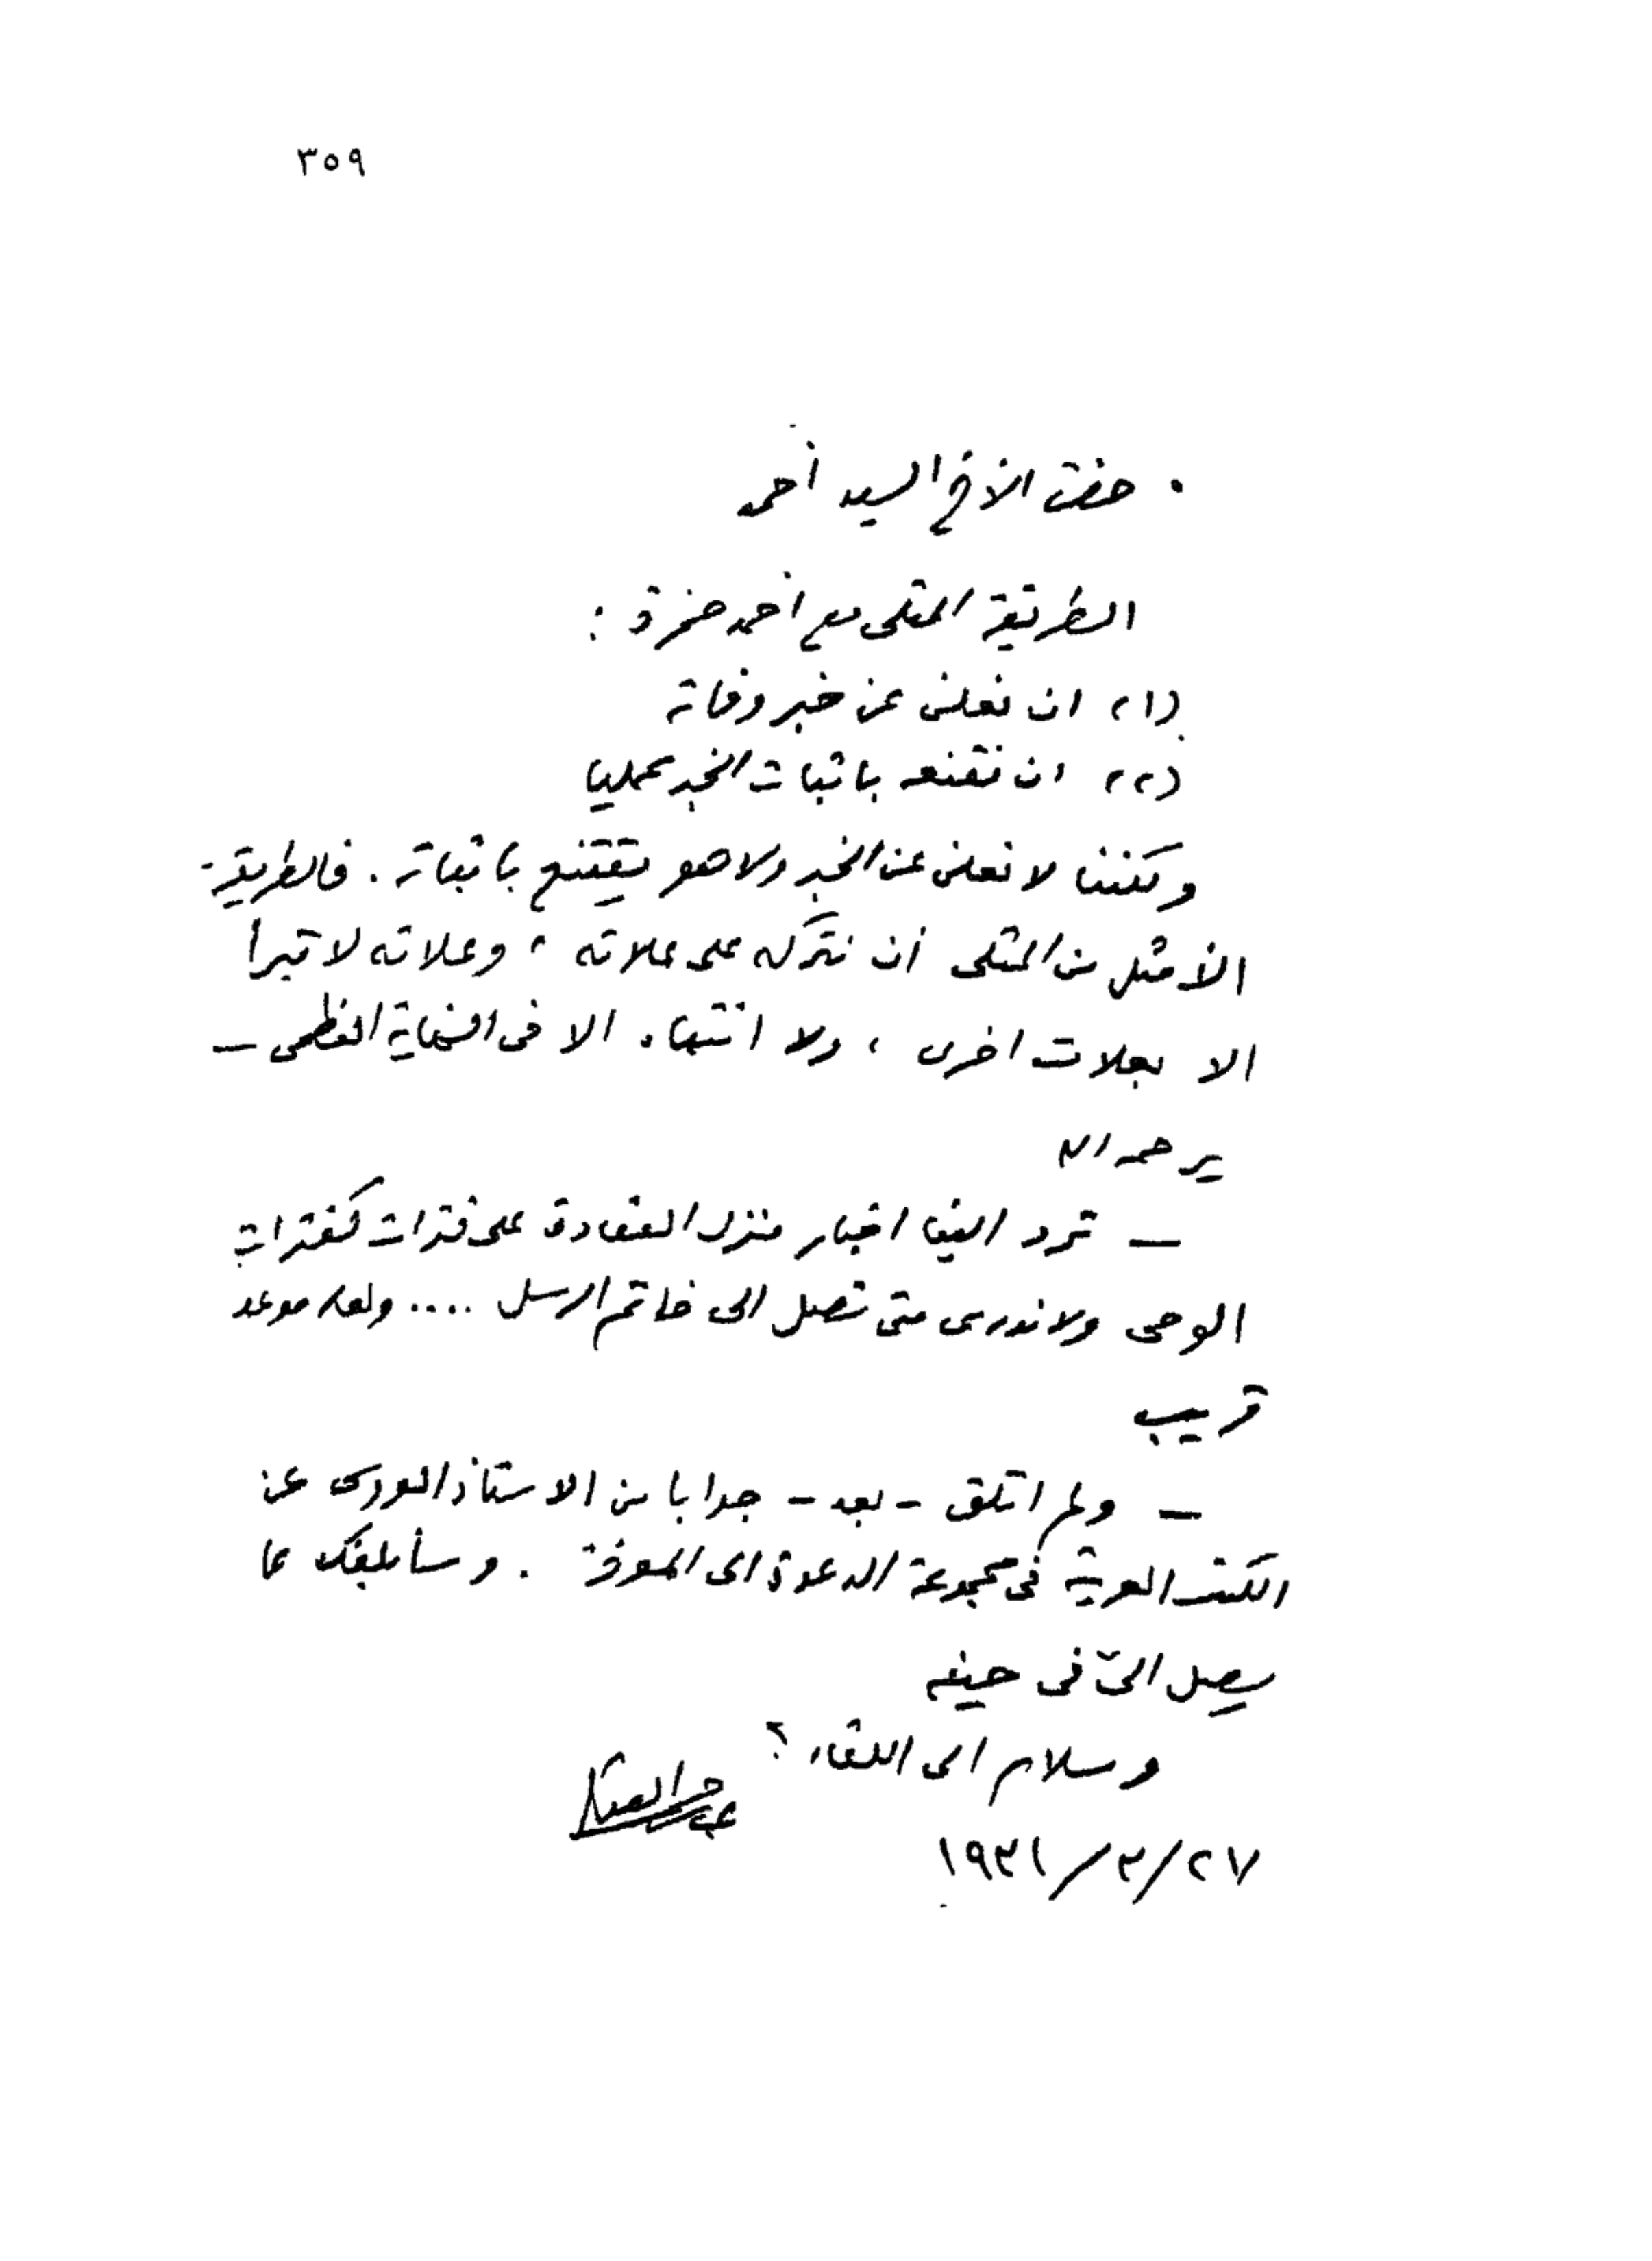 ٣٥٩
حضرة الأخ السيد أحمد
الطريقة المثلى مع أحمد حمزة :
(١) ان نعلن عن خبر وفاته
(٢) ان نقنعه باثبات الخبر عمليا
ولكننا لا نعلن عن الخبر ولا هو يقتنع باثباته . فالطريقة
الأمثل من المثلى أن نتركه على علاته ؛ وعلاته لا تبرأ
الا بعلات اخرى ، ولا انتهاء الا فى النهاية العظمى —
يرحمه الله
— ترد الينا اخبار منزل العقادة على فترات كفترات
الوحى ولا ندرى متى تصل الى خاتم الرسل .... ولعله موعد
قريب
— ولم اتلق - بعد - جوابا من الاستاذ العودى عن
الكتب العربية فى مجموعة الدعوة الى المعرفة . وسأبلغك بما
يصل الىّ فى حينه
وسلام الى اللقاء ؟
عباس العقاد
٢٧/٣/١٩٣١